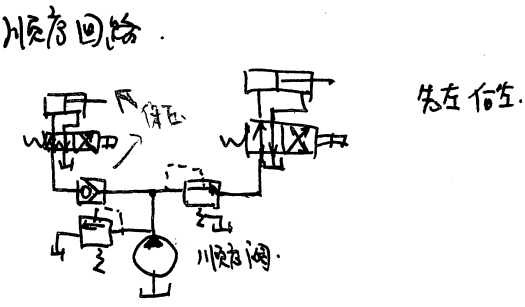 顺序回路.
保压
先左后右.
顺序阀.